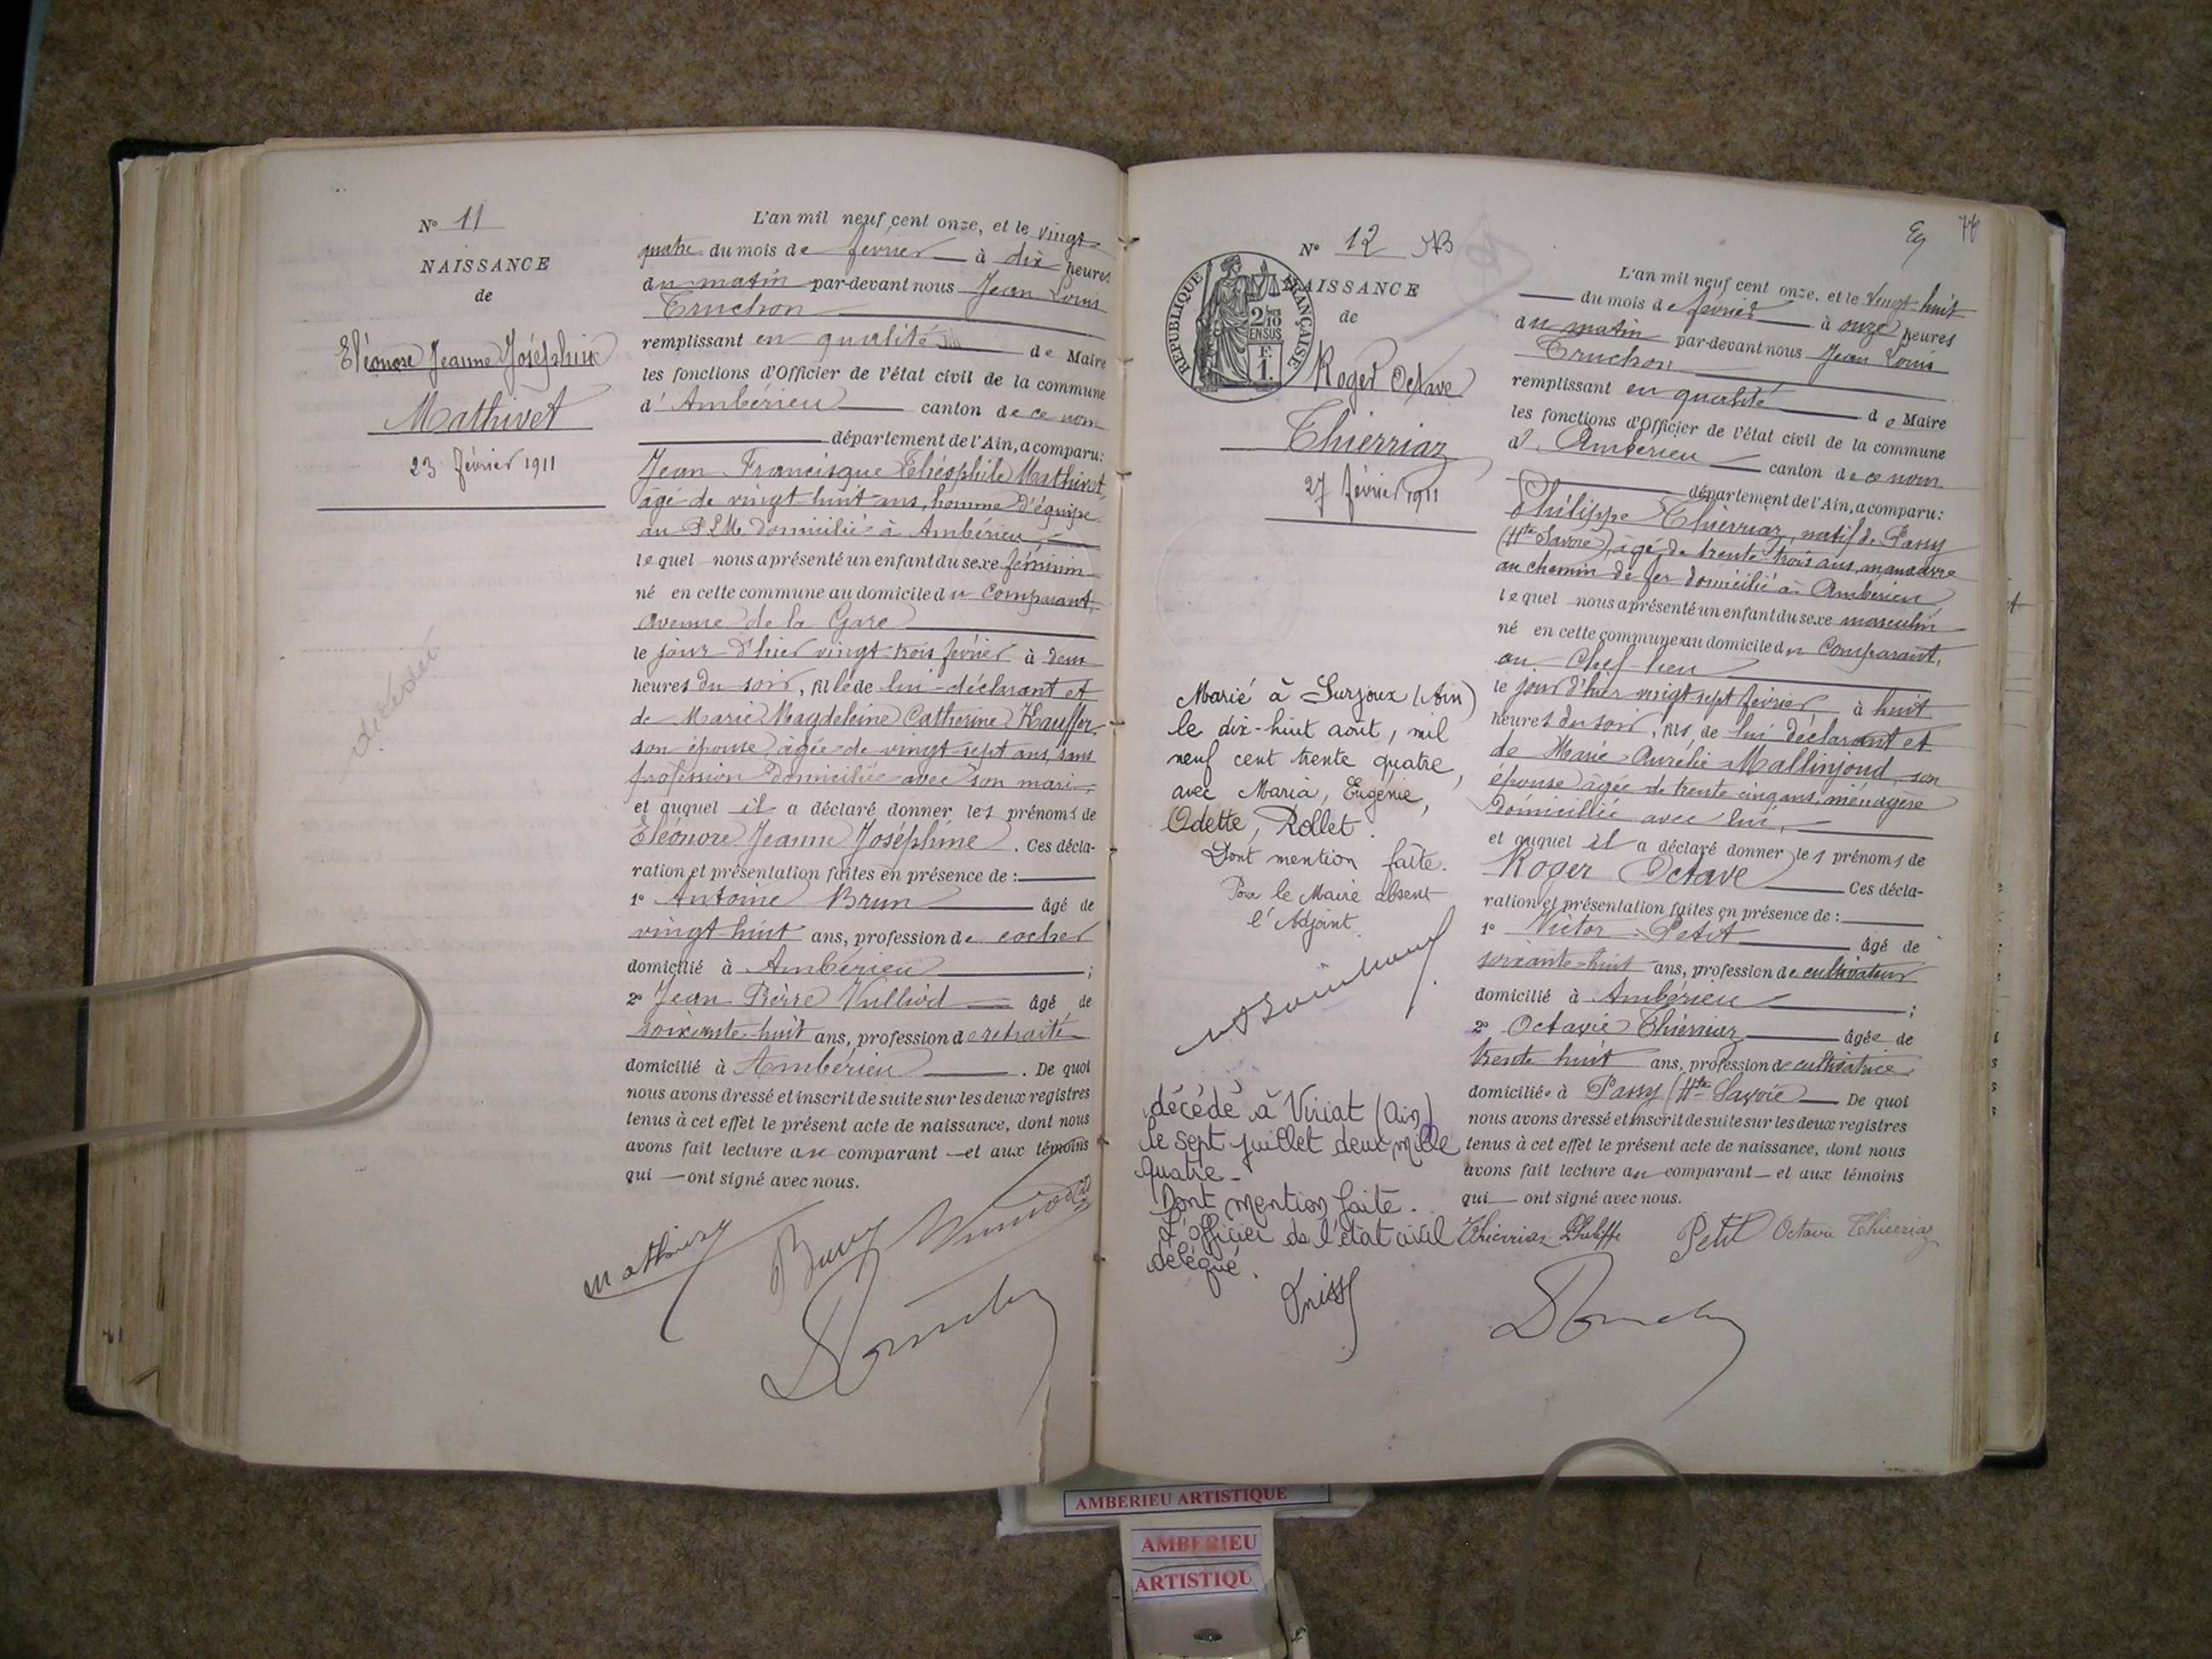 N° 11
NAISSANCE
de
Eléonore Jeanne Joséphine
Mathivet
23 février 1911
décédée
L'an mil neuf cent onze, et le vingt
quatre du mois de février à dix heures
du matin par-devant nous Jean Louis
Truchon
remplissant en qualité de Maire
les fonctions d'Officier de l'état civil de la commune
d'Ambérieu canton de ce nom
département de l'Ain, a comparu:
Jean Francisque Théophile Mathivet,
âgé de vingt-huit ans, homme d'équipe
au P.L.M. domicilié à Ambérieu,
lequel nous a présenté un enfant du sexe féminin
né en cette commune au domicile du comparant,
avenue de la Gare
le jour d'hier vingt-trois février à deux
heures du soir, fille de lui-déclarant et
de Marie Magdeleine Catherine Kauffer
son épouse âgée de vingt-sept ans, sans
profession domiciliée avec son mari
et auquel il a déclaré donner les prénoms de
Eléonore Jeanne Joséphine . Ces décla-
ration et présentation faites en présence de :
1° Antoine Brun âgé de
vingt huit ans, profession de cocher
domicilié à Ambérieu ;
2° Jean Pierre Vulliod âgé de
soixante-huit ans, profession de retraité
domicilié à Ambérieu . De quoi
nous avons dressé et inscrit de suite sur les deux registres
tenus à cet effet le présent acte de naissance, dont nous
avons fait lecture au comparant et aux témoins
qui ont signé avec nous.
Mathivet
Brun
Vulliod
Truchon
77
N° 12 NB
RÉPUBLIQUE FRANÇAISE
2/10 EN SUS
F.
1.
NAISSANCE
de
Roger Octave
Thierriaz
27 février 1911
Marié à Surjoux (Ain)
le dix-huit août, mil
neuf cent trente quatre,
avec Maria, Eugénie,
Odette, Rollet.
Dont mention faite.
Pour le Maire absent
l'Adjoint
décédé à Viriat (Ain)
le sept juillet deux mille
quatre -
Dont mention faite.
L'officier de l'état civil
délégué.
L'an mil neuf cent onze, et le vingt-huit
du mois de février à onze heures
du matin par-devant nous Jean Louis
Truchon
remplissant en qualité de Maire
les fonctions d'Officier de l'état civil de la commune
d'Ambérieu canton de ce nom
département de l'Ain, a comparu:
Philippe Thierriaz, natif de Passy
(Hte Savoie), âgé de trente trois ans, manœuvre
au chemin de fer domicilié à Ambérieu
lequel nous a présenté un enfant du sexe masculin
né en cette commune au domicile du comparant,
au Chef-lieu
le jour d'hier vingt-sept février à huit
heures du soir, fils de lui déclarant et
de Marie Aurélie Mallinjoud, son
épouse âgée de trente cinq ans, ménagère
domiciliée avec lui,
et auquel il a déclaré donner les prénoms de
Roger Octave Ces décla-
ration et présentation faites en présence de :
1° Victor Petit âgé de
soixante-huit ans, profession de cultivateur
domicilié à Ambérieu ;
2° Octavie Thierriaz âgée de
trente-huit ans, profession de cultivatrice
domiciliée à Passy (Hte Savoie) De quoi
nous avons dressé et inscrit de suite sur les deux registres
tenus à cet effet le présent acte de naissance, dont nous
avons fait lecture au comparant et aux témoins
qui ont signé avec nous.
Thierriaz Philippe Petit Octavie Thierriaz
Truchon
AMBERIEU ARTISTIQUE
AMBERIEU
ARTISTIQU